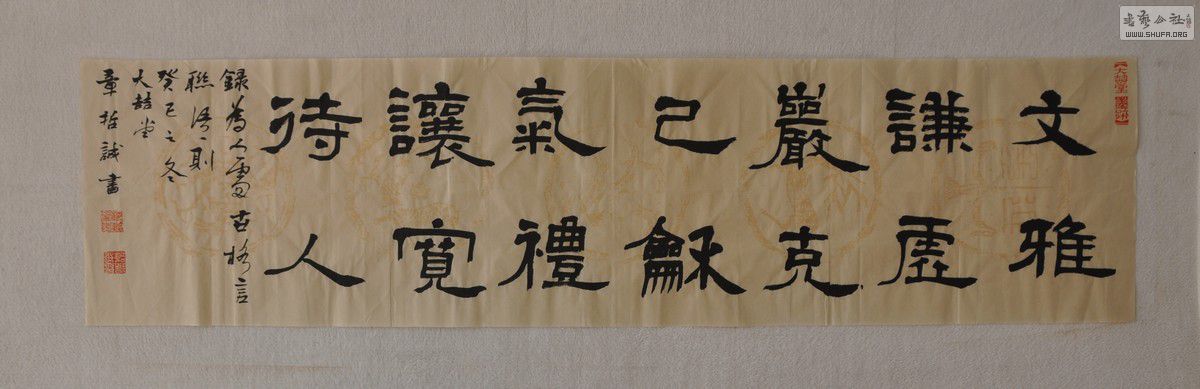 文雅
謙虛
嚴克
己龢
氣禮
讓寬
待人
錄為人處古格言
聯語一則
癸巳之冬
大喆堂
章哲誠書
書藝公社
WWW.SHUFA.ORG